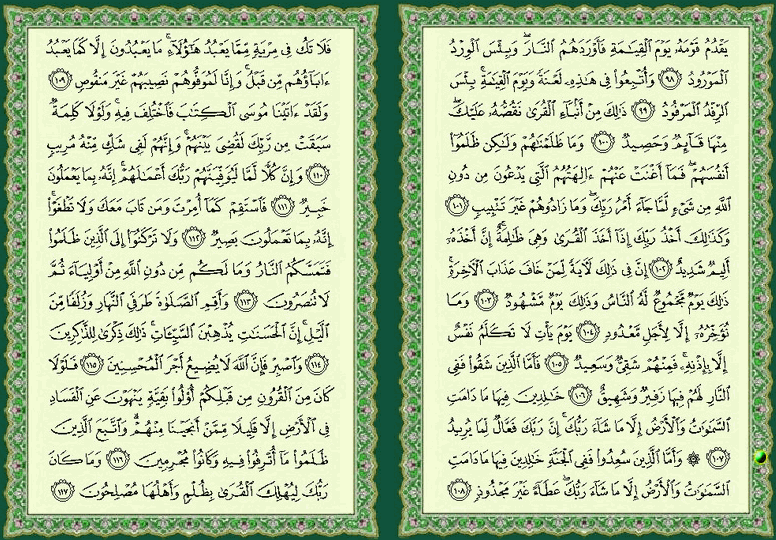 يَقۡدُمُ قَوۡمَهُۥ يَوۡمَ ٱلۡقِيَٰمَةِ فَأَوۡرَدَهُمُ ٱلنَّارَۖ وَبِئۡسَ ٱلۡوِرۡدُ
ٱلۡمَوۡرُودُ ٩٨ وَأُتۡبِعُواْ فِي هَٰذِهِۦ لَعۡنَةٗ وَيَوۡمَ ٱلۡقِيَٰمَةِۚ بِئۡسَ
ٱلرِّفۡدُ ٱلۡمَرۡفُودُ ٩٩ ذَٰلِكَ مِنۡ أَنۢبَآءِ ٱلۡقُرَىٰ نَقُصُّهُۥ عَلَيۡكَۖ
مِنۡهَا قَآئِمٞ وَحَصِيدٞ ١٠٠ وَمَا ظَلَمۡنَٰهُمۡ وَلَٰكِن ظَلَمُوٓاْ
أَنفُسَهُمۡۖ فَمَآ أَغۡنَتۡ عَنۡهُمۡ ءَالِهَتُهُمُ ٱلَّتِي يَدۡعُونَ مِن دُونِ
ٱللَّهِ مِن شَيۡءٖ لَّمَّا جَآءَ أَمۡرُ رَبِّكَۖ وَمَا زَادُوهُمۡ غَيۡرَ تَتۡبِيبٖ ١٠١
وَكَذَٰلِكَ أَخۡذُ رَبِّكَ إِذَآ أَخَذَ ٱلۡقُرَىٰ وَهِيَ ظَٰلِمَةٌۚ إِنَّ أَخۡذَهُۥٓ
أَلِيمٞ شَدِيدٌ ١٠٢ إِنَّ فِي ذَٰلِكَ لَأٓيَةٗ لِّمَنۡ خَافَ عَذَابَ ٱلۡأٓخِرَةِۚ
ذَٰلِكَ يَوۡمٞ مَّجۡمُوعٞ لَّهُ ٱلنَّاسُ وَذَٰلِكَ يَوۡمٞ مَّشۡهُودٞ ١٠٣ وَمَا
نُؤَخِّرُهُۥٓ إِلَّا لِأَجَلٖ مَّعۡدُودٖ ١٠٤ يَوۡمَ يَأۡتِ لَا تَكَلَّمُ نَفۡسٌ
إِلَّا بِإِذۡنِهِۦۚ فَمِنۡهُمۡ شَقِيّٞ وَسَعِيدٞ ١٠٥ فَأَمَّا ٱلَّذِينَ شَقُواْ فَفِي
ٱلنَّارِ لَهُمۡ فِيهَا زَفِيرٞ وَشَهِيقٌ ١٠٦ خَٰلِدِينَ فِيهَا مَا دَامَتِ
ٱلسَّمَٰوَٰتُ وَٱلۡأَرۡضُ إِلَّا مَا شَآءَ رَبُّكَۚ إِنَّ رَبَّكَ فَعَّالٞ لِّمَا يُرِيدُ
١٠٧ ۞ وَأَمَّا ٱلَّذِينَ سُعِدُواْ فَفِي ٱلۡجَنَّةِ خَٰلِدِينَ فِيهَا مَا دَامَتِ
ٱلسَّمَٰوَٰتُ وَٱلۡأَرۡضُ إِلَّا مَا شَآءَ رَبُّكَۖ عَطَآءً غَيۡرَ مَجۡذُوذٖ ١٠٨
فَلَا تَكُ فِي مِرۡيَةٖ مِّمَّا يَعۡبُدُ هَٰٓؤُلَآءِۚ مَا يَعۡبُدُونَ إِلَّا كَمَا يَعۡبُدُ
ءَابَآؤُهُم مِّن قَبۡلُۚ وَإِنَّا لَمُوَفُّوهُمۡ نَصِيبَهُمۡ غَيۡرَ مَنقُوصٖ ١٠٩
وَلَقَدۡ ءَاتَيۡنَا مُوسَى ٱلۡكِتَٰبَ فَٱخۡتُلِفَ فِيهِۚ وَلَوۡلَا كَلِمَةٞ
سَبَقَتۡ مِن رَّبِّكَ لَقُضِيَ بَيۡنَهُمۡۚ وَإِنَّهُمۡ لَفِي شَكّٖ مِّنۡهُ مُرِيبٖ
١١٠ وَإِنَّ كُلّٗا لَّمَّا لَيُوَفِّيَنَّهُمۡ رَبُّكَ أَعۡمَٰلَهُمۡۚ إِنَّهُۥ بِمَا يَعۡمَلُونَ
خَبِيرٞ ١١١ فَٱسۡتَقِمۡ كَمَآ أُمِرۡتَ وَمَن تَابَ مَعَكَ وَلَا تَطۡغَوۡاْۚ
إِنَّهُۥ بِمَا تَعۡمَلُونَ بَصِيرٞ ١١٢ وَلَا تَرۡكَنُوٓاْ إِلَى ٱلَّذِينَ ظَلَمُواْ
فَتَمَسَّكُمُ ٱلنَّارُ وَمَا لَكُم مِّن دُونِ ٱللَّهِ مِنۡ أَوۡلِيَآءَ ثُمَّ
لَا تُنصَرُونَ ١١٣ وَأَقِمِ ٱلصَّلَوٰةَ طَرَفَيِ ٱلنَّهَارِ وَزُلَفٗا مِّنَ
ٱلَّيۡلِۚ إِنَّ ٱلۡحَسَنَٰتِ يُذۡهِبۡنَ ٱلسَّيِّـَٔاتِۚ ذَٰلِكَ ذِكۡرَىٰ لِلذَّٰكِرِينَ
١١٤ وَٱصۡبِرۡ فَإِنَّ ٱللَّهَ لَا يُضِيعُ أَجۡرَ ٱلۡمُحۡسِنِينَ ١١٥ فَلَوۡلَا
كَانَ مِنَ ٱلۡقُرُونِ مِن قَبۡلِكُمۡ أُوْلُواْ بَقِيَّةٖ يَنۡهَوۡنَ عَنِ ٱلۡفَسَادِ
فِي ٱلۡأَرۡضِ إِلَّا قَلِيلٗا مِّمَّنۡ أَنجَيۡنَا مِنۡهُمۡۗ وَٱتَّبَعَ ٱلَّذِينَ
ظَلَمُواْ مَآ أُتۡرِفُواْ فِيهِ وَكَانُواْ مُجۡرِمِينَ ١١٦ وَمَا كَانَ
رَبُّكَ لِيُهۡلِكَ ٱلۡقُرَىٰ بِظُلۡمٖ وَأَهۡلُهَا مُصۡلِحُونَ ١١٧